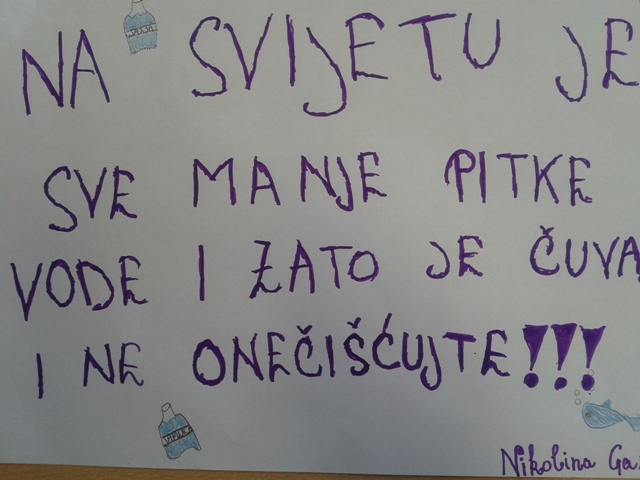 NA SVIJETU JE
SVE MANJE PITKE
VODE I ZATO JE ČUVA
I NE ONEČIŠĆUJTE!!!
Nikolina Ga